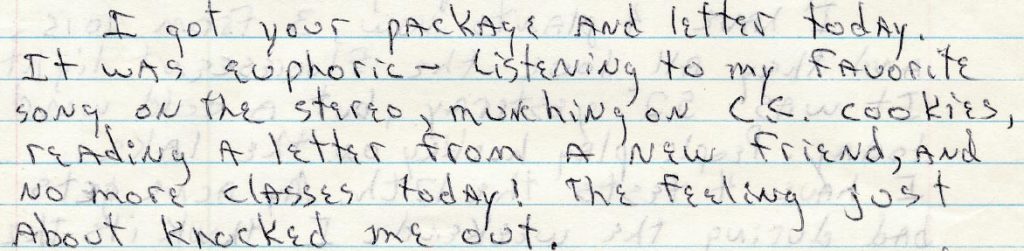 I got your package and letter today.
It was euphoric - Listening to my favorite
song on the stereo, munching on C.C. cookies,
reading a letter from a new friend, and
no more classes today! The feeling just
about knocked me out.